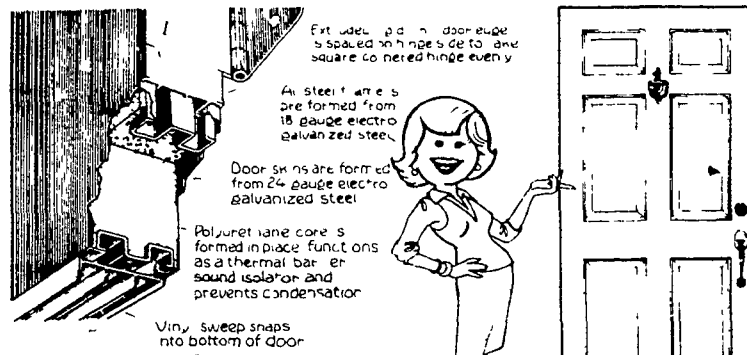 door edge
is spaced on hinge side to
square cornered hinge evenly
steel
are formed from
18 gauge electro
galvanized steel
Door skins are formed
from 24 gauge electro
galvanized steel
Polyurethane core is
formed in place functions
as a thermal barrier
sound isolator and
prevents condensation
Vinyl sweep snaps
into bottom of door